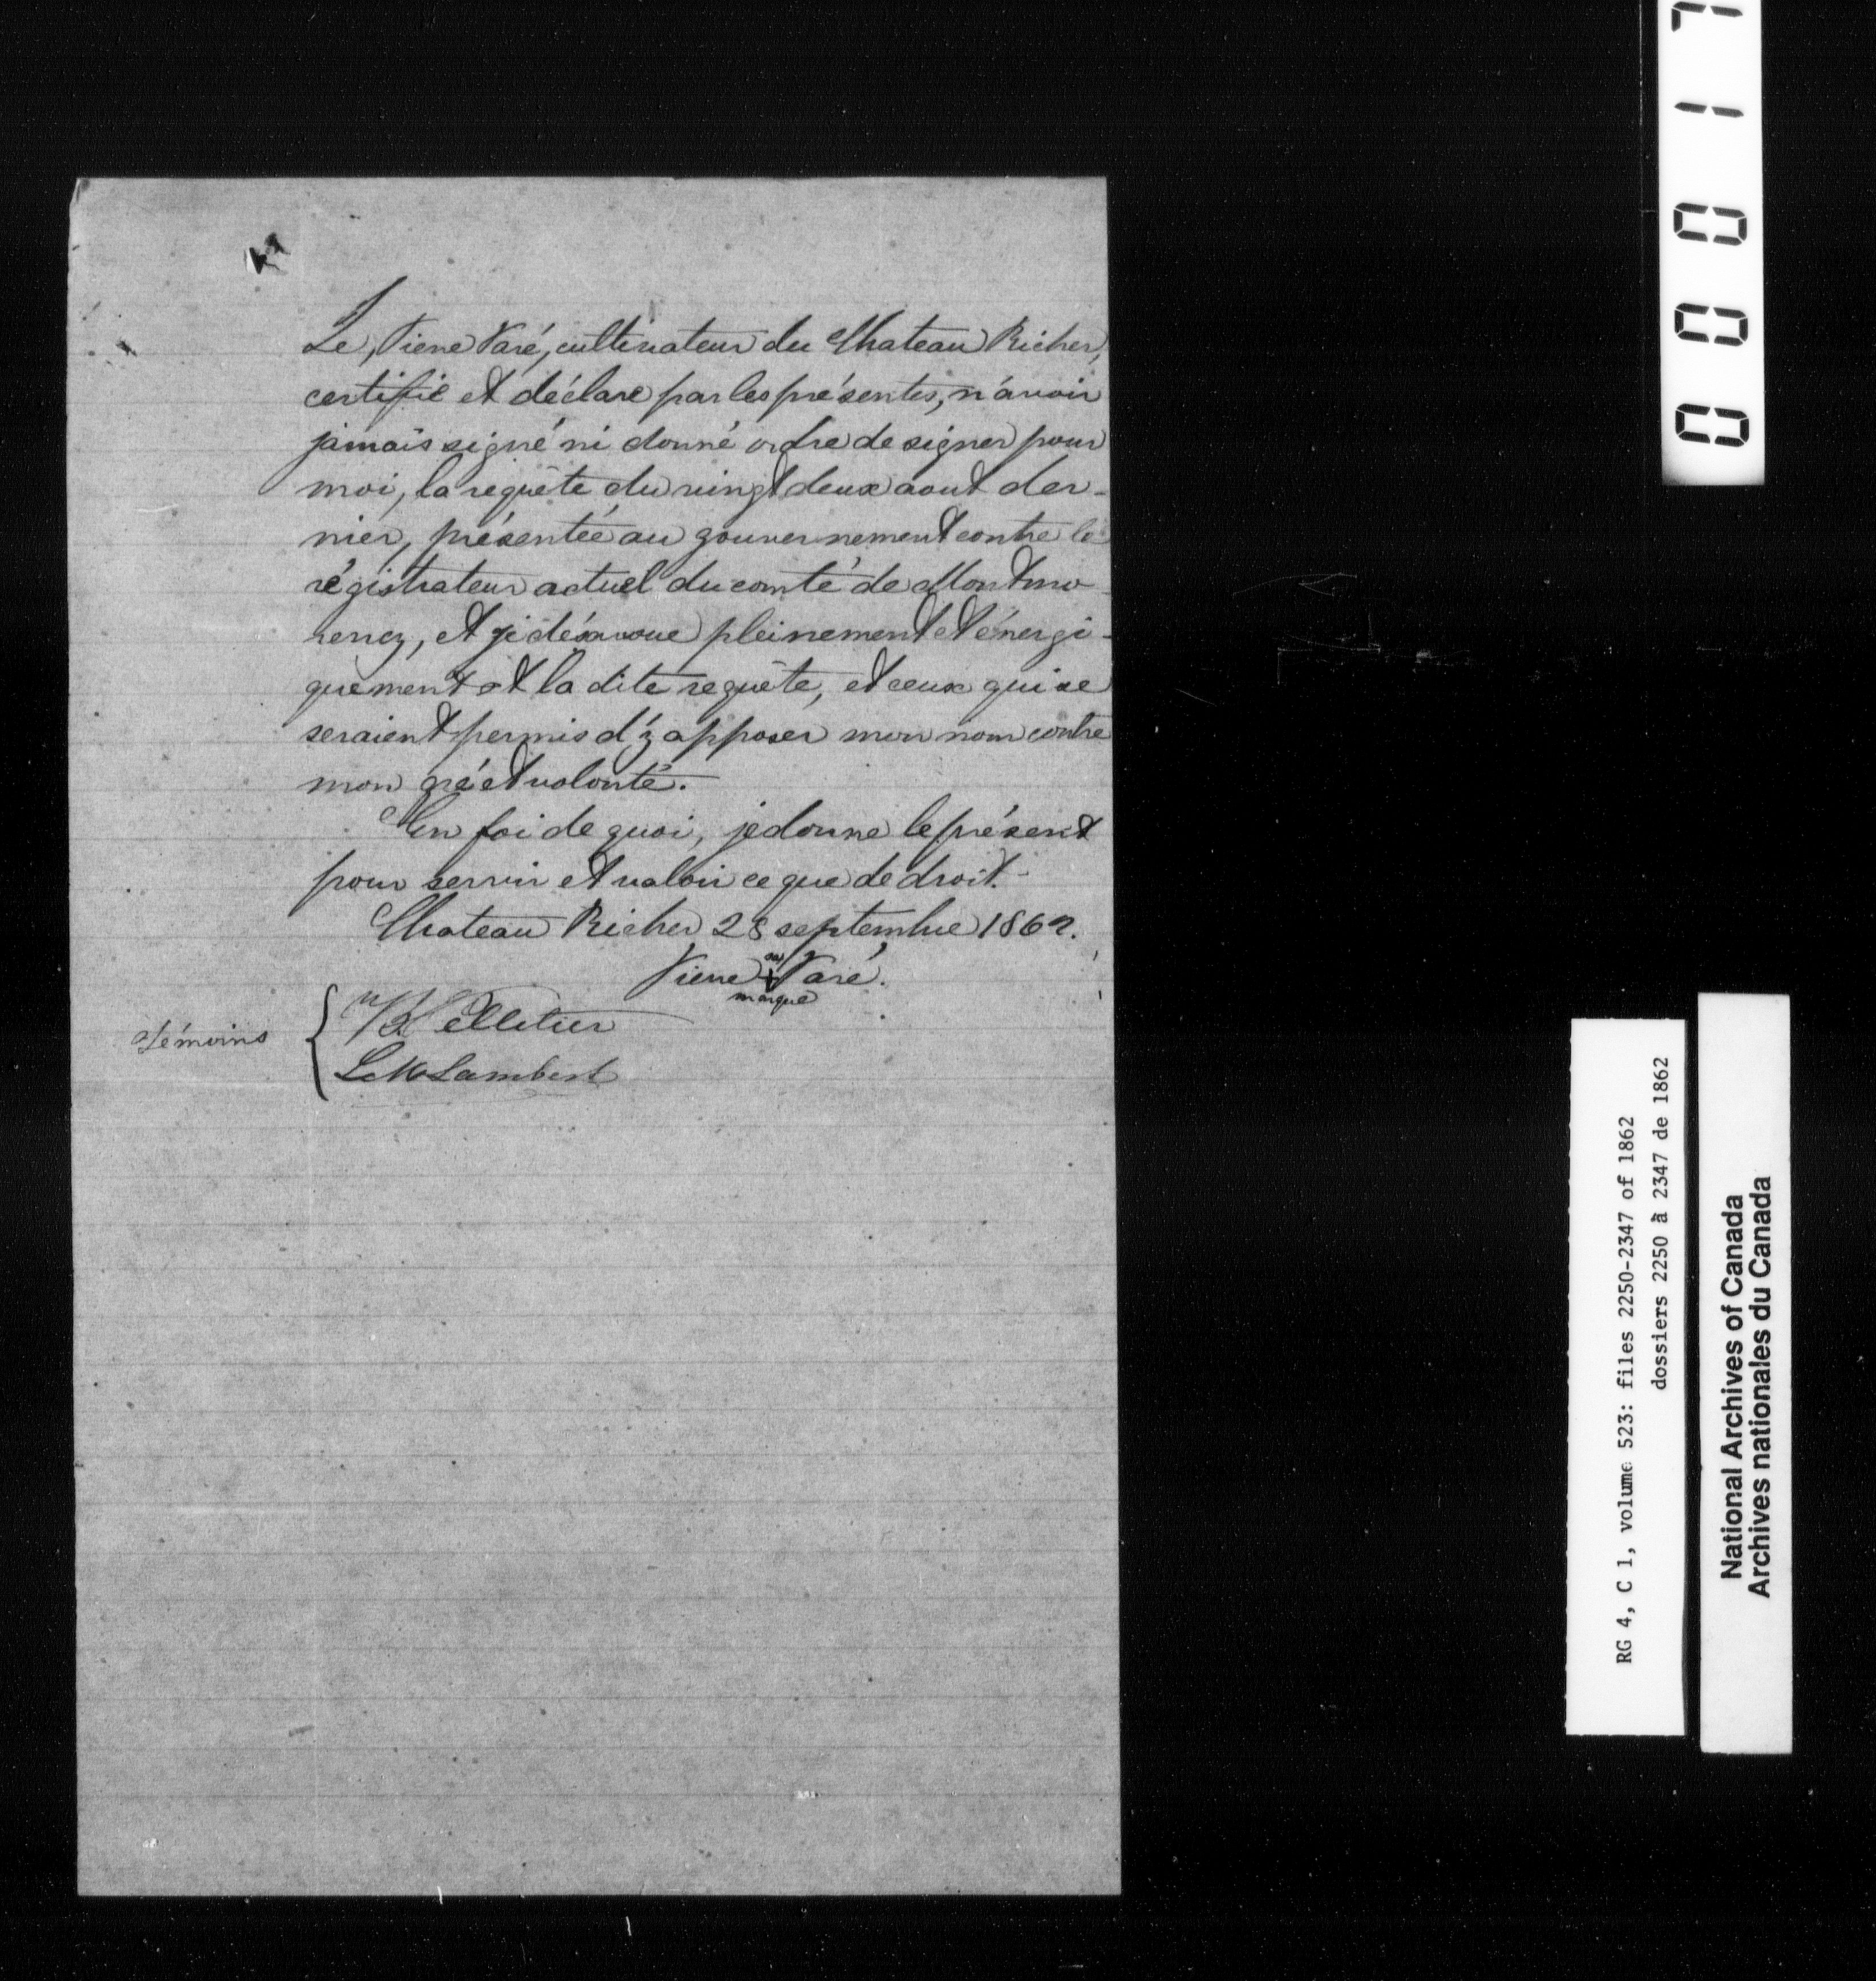 Je, Pierre Paré, cultivateur du Chateau Richer,
certifie et déclare par les présentes, n'avoir
jamais signé ni donné ordre de signer pour
moi, la requête du vingt deux aout der-
nier, présentée au gouvernement contre le
régistrateur actuel du comté de Montmo-
rency, et je désavoue pleinement et énergi-
quement et la dite requête, et ceux qui se
seraient permis d'y apposer mon nom contre
mon gré et volonté.
En foi de quoi, je donne le présent
pour servir et valoir ce que de droit.
Chateau Richer 28 septembre 1862.
Pierre sa + marque Paré.
Témoins
Pelletier
Lambert
00017
RG 4, C 1, volume 523: files 2250-2347 of 1862
dossiers 2250 à 2347 de 1862
National Archives of Canada
Archives nationales du Canada